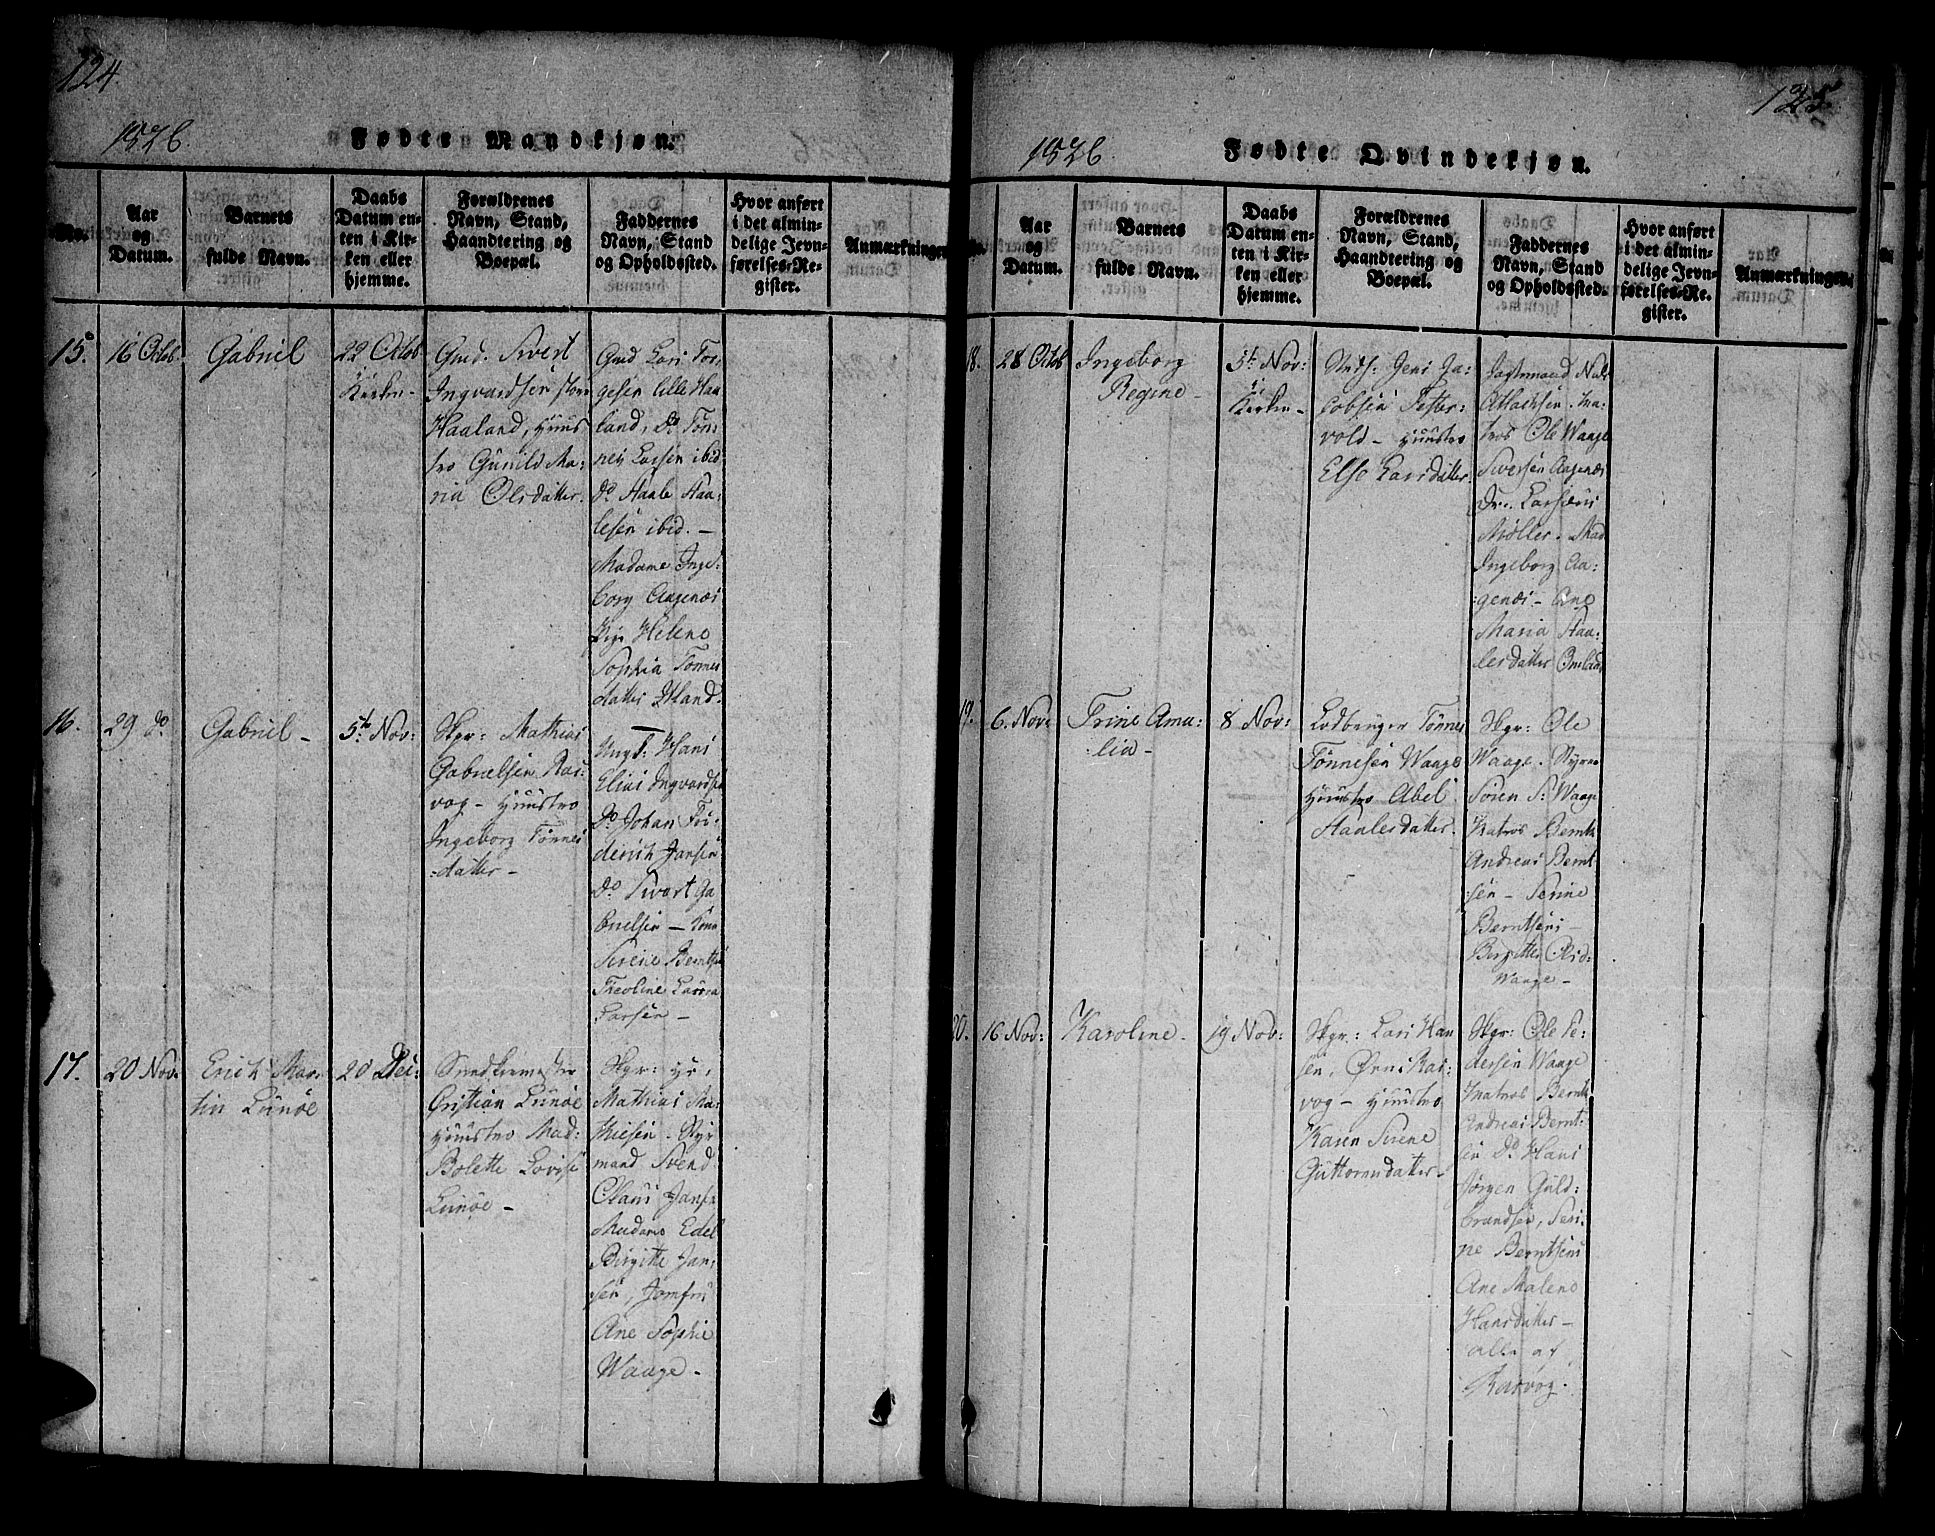 124.
1826.
Fødte Mandkjøn.
No.
Aar
og
Datum.
Barnets
fulde Navn.
Daabs
Datum en-
ten i Kir-
ken eller
hjemme.
Forældrenes
Navn, Stand,
Haandtering og
Boepæl.
Faddernes
Navn, Stand
og Opholdssted.
Hvor anført
i det almin-
delige Jevn-
førelses-Re-
gister.
Anmærkninger
15.
16 Octob.
Gabriel
22 Octob
Kirken
Gmd. Sivert
Ingvardsen store
Haaland, Huus
tro Gunild Ma:
ria Olsdatter.
Gmd Lars Tor-
gesen lille Haa
land, Do Tøn-
nes Larsen ibid
Do Haale Haa:
lesen ibid. -
Madame Inge-
borg Aagenæs
Pige Helene
Sophia Tønnes
datter
16.
29 do
Gabriel -
5te Nov:
Skpr: Mathias
Gabrielsen Ras-
vog - Huustro
Ingeborg Tønnes
:datter -
Ungk: Hans
Elias Ingvardsen
Do Johan Fri-
derich Jansen
Do Sivert Ga
brielsen - Kone
Sirene Berntsen
Larsen -
17.
20 Nov.
Erich Mar-
tin Lunøe
20 Dec:
Cristian Lunøe
Huustro Mad:
Bolette Lovise
Lunøe -
Skpr: Hr.
Mathias Ma-
thiesen. Styr
mand Svend
Claus Jansen
Madame Edel
Birgitte Jan-
sen, Jomfru
Ane Sophie
Waage -
125.
1826.
Fødte Qvindekjøn.
No.
Aar
og
Datum.
Barnets
fulde Navn.
Daabs
Datum en-
ten i Kir-
ken eller
hjemme.
Forældrenes
Navn, Stand,
Haandtering og
Boepæl.
Faddernes
Navn, Stand
og Opholdssted.
Hvor anført
i det almin-
delige Jevn-
førelses-Re-
gister.
Anmærkninger.
18.
28 Octob
Ingeborg
Regine -
5te Nov:
Kirken -
Jens Ja-
cobsen Tetter-
vold - Huustro
Else Larsdatter
Ma-
tros Ole Waage
Sivertsen Aagenæs
Møller. Mad
Ingeborg Aa-
:genæs - Ane
Maria Haa-
lesdatter
19.
6. Nov:
Trine Ama:
lia -
8 Nov:
Lodbruger Tønnes
Tønnesen Waage
Huustro Abel
Haalesdatter.
Skpr: Ole
Waage. Styrm
Søren S: Waage
Matros Bernt
Andreas Bernt-
sen - Serine
Berntsens -
Birgitte Olsd:
Waage -
20.
16 Nov:
Karoline -
19 Nov:
Skpr: Lars Han
sen, Ørns Ras-
vog - Huustro
Karen Sirene
Guttormsdatter -
Skpr: Ole Pe-
dersen Waage
Matros Bernt
Andreas Bernt-
sen Do Hans
Jørgen Guld-
brandsen, Seri-
ne Berntsens
Ane Malene
Hansdatter -
alle af
Rasvog.